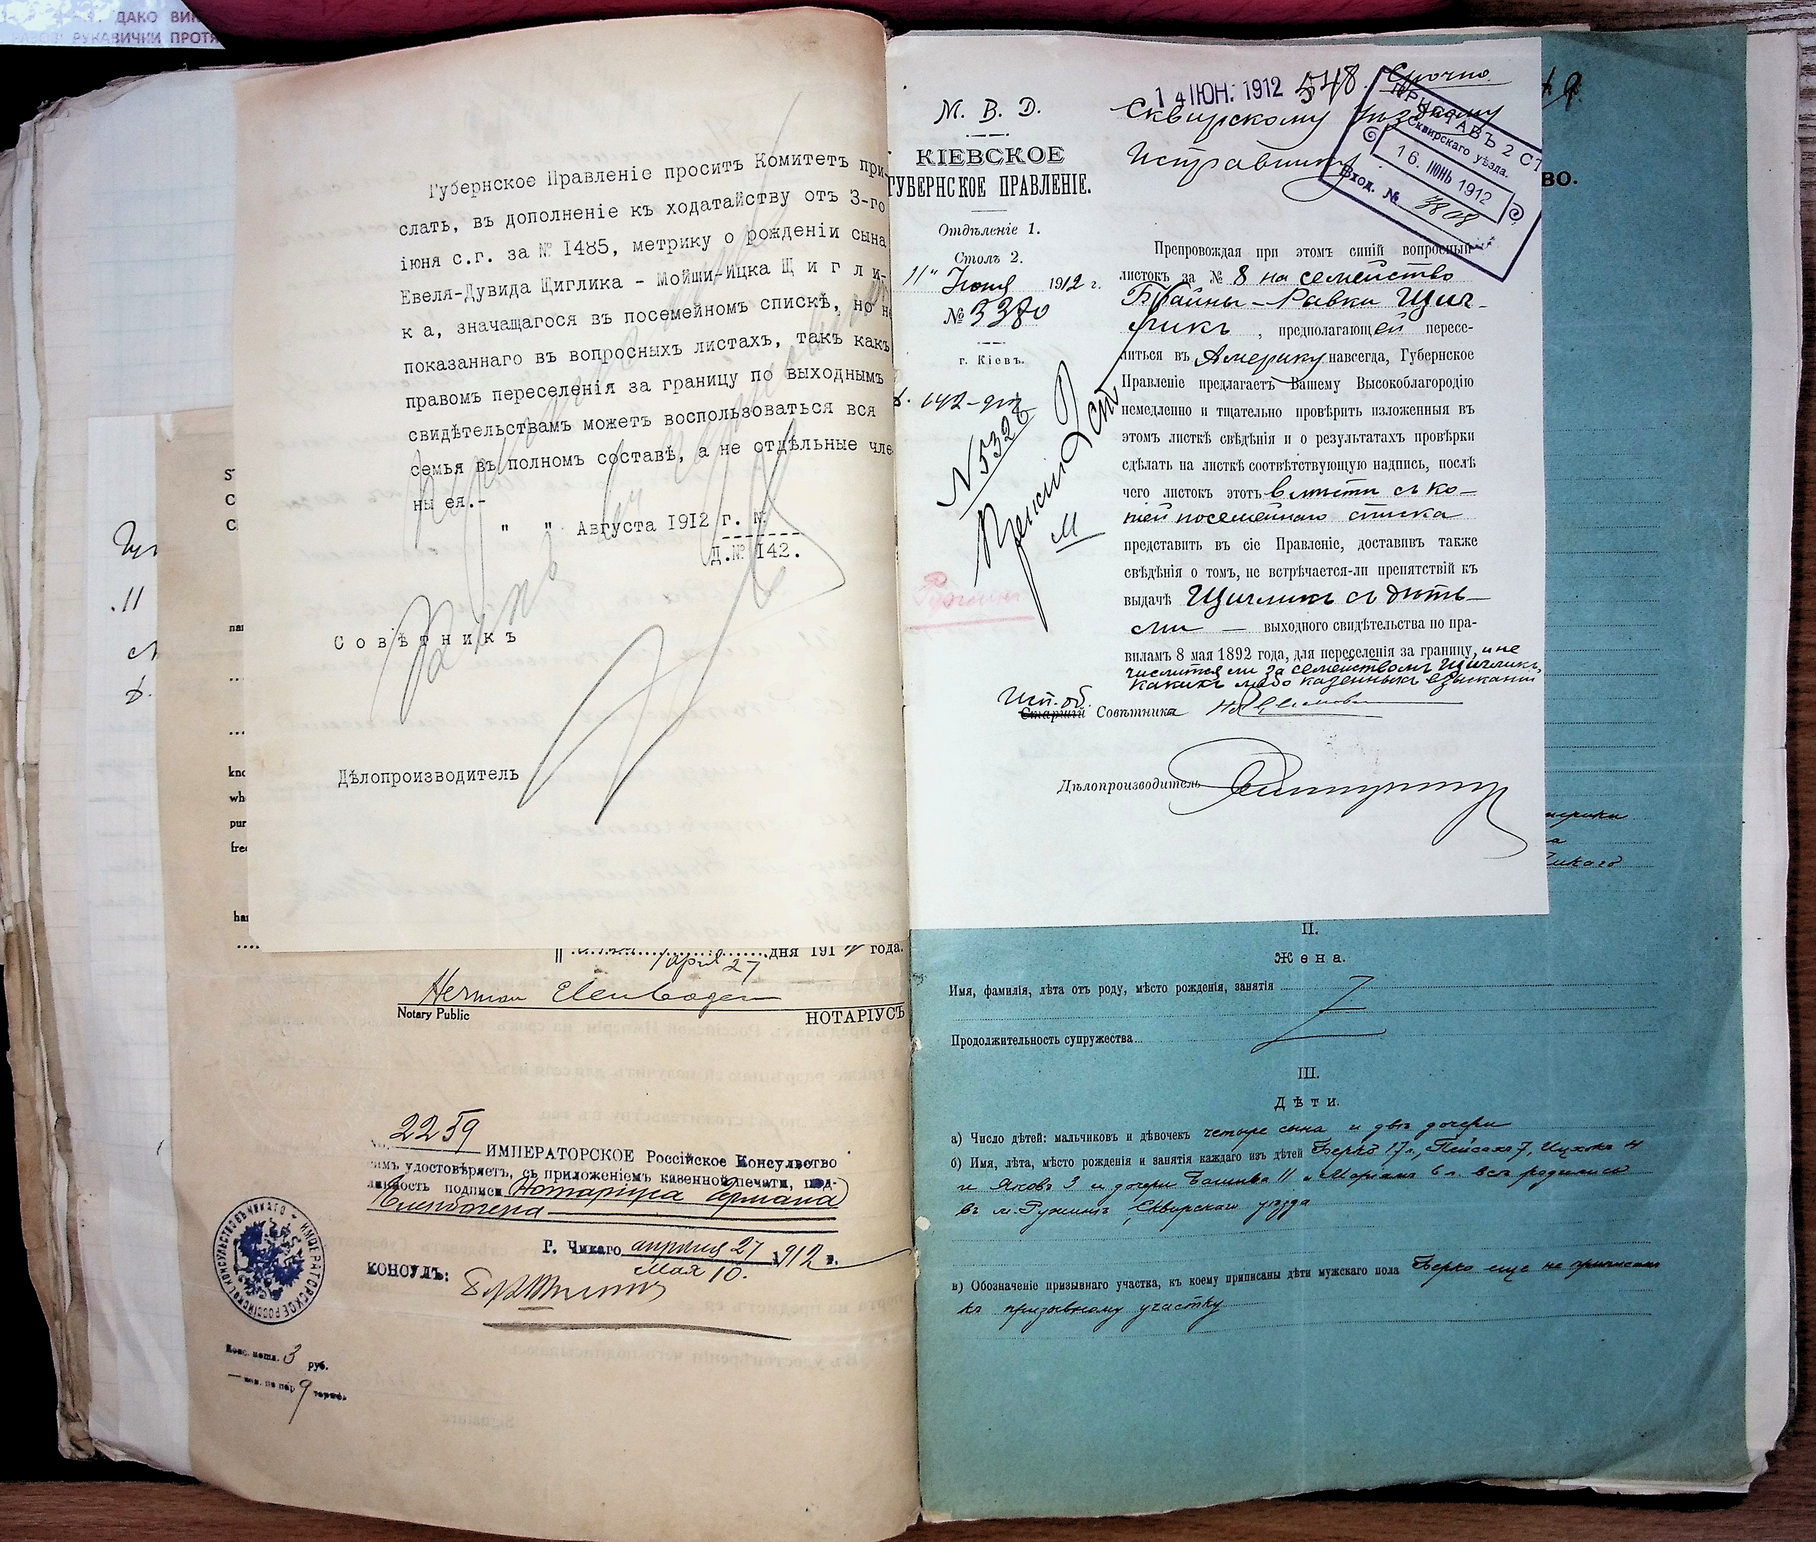 ДАКО
РУКАВИЧКИ
Губернское Правленіе проситъ Комитетъ при-
слать, въ дополненіе къ ходатайству отъ 3-го
іюня с.г. за № 1485, метрику о рожденіи сына
Евеля-Дувида Щиглика - Мойши-Ицка Щ и г л и-
к а, значащагося въ посемейномъ спискѣ, но не
показаннаго въ вопросныхъ листахъ, такъ какъ
правомъ переселенія за границу по выходнымъ
свидѣтельствамъ можетъ воспользоваться вся
семья въ полномъ составѣ, а не отдѣльные чле
ны ея.-
" " Августа 1912 г. №
Д.№ 142.
Совѣтникъ
Дѣлопроизводитель
дня 191 года.
April 27
Herman Elenbogen
Notary Public НОТАРІУСЪ
2259
ИМПЕРАТОРСКОЕ Россійское Консульство
симъ удостовѣряетъ, съ приложеніемъ казенной печати, под-
линность подписи Нотаріуса Германа
Еленбогена
Г. Чикаго апрѣля 27 1912 г.
Мая 10.
КОНСУЛЪ:
3 руб.
9
М. В. Д.
КІЕВСКОЕ
ГУБЕРНСКОЕ ПРАВЛЕНІЕ.
Отдѣленіе 1.
Столъ 2.
11" Іюня 1912 г.
№ 3380
г. Кіевъ.
№ 5328
14 ІЮН. 1912 548 Срочно
Сквирскому Уѣздному
Исправнику
ПРИСТАВЪ 2 СТ
Сквирскаго уѣзда.
16. ІЮНЬ 1912
Вход. № 3808
ВО.
Препровождая при этомъ синій вопросный
листокъ за № 8 на семейство
Брайны-Равки Щиг-
ликъ, предполагающей пересе-
литься въ Америку навсегда, Губернское
Правленіе предлагаетъ Вашему Высокоблагородію
немедленно и тщательно провѣрить изложенныя въ
этомъ листкѣ свѣдѣнія и о результатахъ провѣрки
сдѣлать на листкѣ соотвѣтствующую надпись, послѣ
чего листокъ этотъ вмѣстѣ съ ко-
піей посемейнаго списка
представить въ сіе Правленіе, доставивъ также
свѣдѣнія о томъ, не встрѣчается-ли препятствій къ
выдачѣ Щигликъ съ дѣть-
ми — выходного свидѣтельства по пра-
виламъ 8 мая 1892 года, для переселенія за границу, и не
числится ли за семействомъ Щигликъ
какихъ либо казенныхъ взысканій
Исп. об.
Старшій Совѣтника
Дѣлопроизводитель
II.
Жена.
Имя, фамилія, лѣта отъ роду, мѣсто рожденія, занятія
Продолжительность супружества
III.
Дѣти.
а) Число дѣтей: мальчиковъ и дѣвочекъ четыре сына и двѣ дочери
б) Имя, лѣта, мѣсто рожденія и занятія каждаго изъ дѣтей Берко 17 л., Пейсахъ 7, Ицхокъ 4
и Яковъ 3 и дочери Башива 11 и Маріамъ 6 л. всѣ родились
въ м. Ружинѣ Сквирскаго уѣзда
в) Обозначеніе призывнаго участка, къ коему приписаны дѣти мужскаго пола Берко еще не приписанъ
къ призывному участку